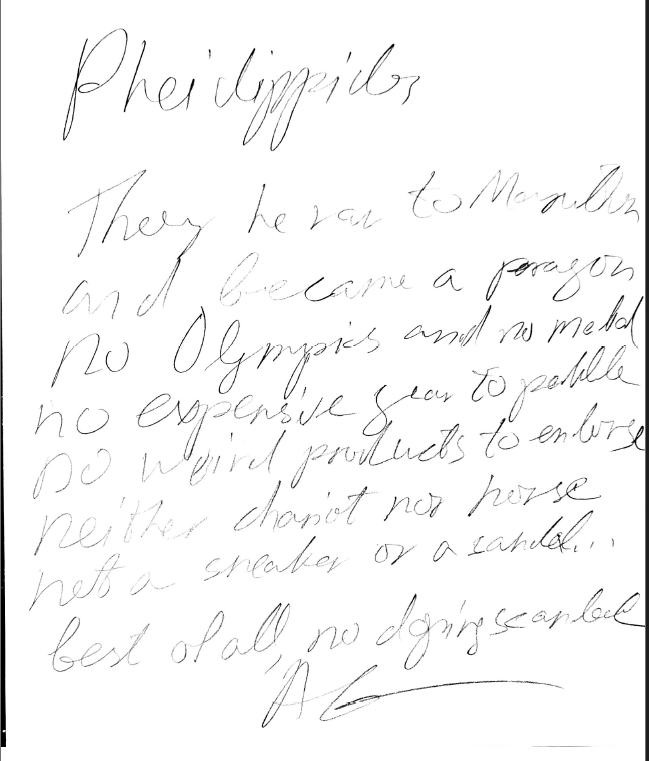 Pheidippides
he ran to Marathon
and became a paragon
no Olympics and no medal
no expensive gear to peddle
no weird products to endorse
neither chariot nor horse
not a sneaker or a sandal...
best of all, no doping scandal
AG